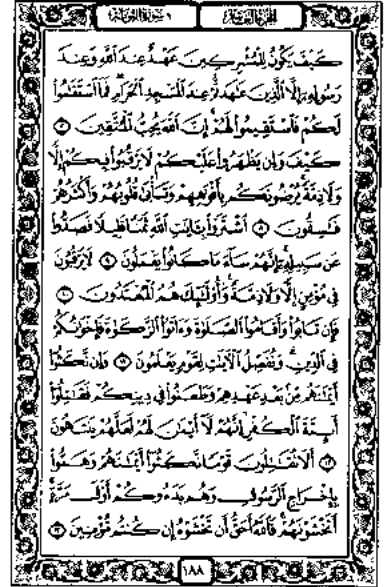 الجزء العاشر ٩ سورة التوبة
كَيْفَ يَكُونُ لِلْمُشْرِكِينَ عَهْدٌ عِندَ اللَّهِ وَعِندَ
رَسُولِهِ إِلَّا الَّذِينَ عَاهَدتُّمْ عِندَ الْمَسْجِدِ الْحَرَامِ فَمَا اسْتَقَامُوا
لَكُمْ فَاسْتَقِيمُوا لَهُمْ إِنَّ اللَّهَ يُحِبُّ الْمُتَّقِينَ ٧
كَيْفَ وَإِن يَظْهَرُوا عَلَيْكُمْ لَا يَرْقُبُوا فِيكُمْ إِلًّا
وَلَا ذِمَّةً يُرْضُونَكُم بِأَفْوَاهِهِمْ وَتَأْبَىٰ قُلُوبُهُمْ وَأَكْثَرُهُمْ
فَاسِقُونَ ٨ اشْتَرَوْا بِآيَاتِ اللَّهِ ثَمَنًا قَلِيلًا فَصَدُّوا
عَن سَبِيلِهِ إِنَّهُمْ سَاءَ مَا كَانُوا يَعْمَلُونَ ٩ لَا يَرْقُبُونَ
فِي مُؤْمِنٍ إِلًّا وَلَا ذِمَّةً وَأُولَٰئِكَ هُمُ الْمُعْتَدُونَ ١٠
فَإِن تَابُوا وَأَقَامُوا الصَّلَوٰةَ وَآتَوُا الزَّكَوٰةَ فَإِخْوَانُكُمْ
فِي الدِّينِ وَنُفَصِّلُ الْآيَاتِ لِقَوْمٍ يَعْلَمُونَ ١١ وَإِن نَّكَثُوا
أَيْمَانَهُم مِّن بَعْدِ عَهْدِهِمْ وَطَعَنُوا فِي دِينِكُمْ فَقَاتِلُوا
أَئِمَّةَ الْكُفْرِ إِنَّهُمْ لَا أَيْمَانَ لَهُمْ لَعَلَّهُمْ يَنتَهُونَ
١٢ أَلَا تُقَاتِلُونَ قَوْمًا نَّكَثُوا أَيْمَانَهُمْ وَهَمُّوا
بِإِخْرَاجِ الرَّسُولِ وَهُم بَدَءُوكُمْ أَوَّلَ مَرَّةٍ
أَتَخْشَوْنَهُمْ فَاللَّهُ أَحَقُّ أَن تَخْشَوْهُ إِن كُنتُم مُّؤْمِنِينَ ١٣
١٨٨